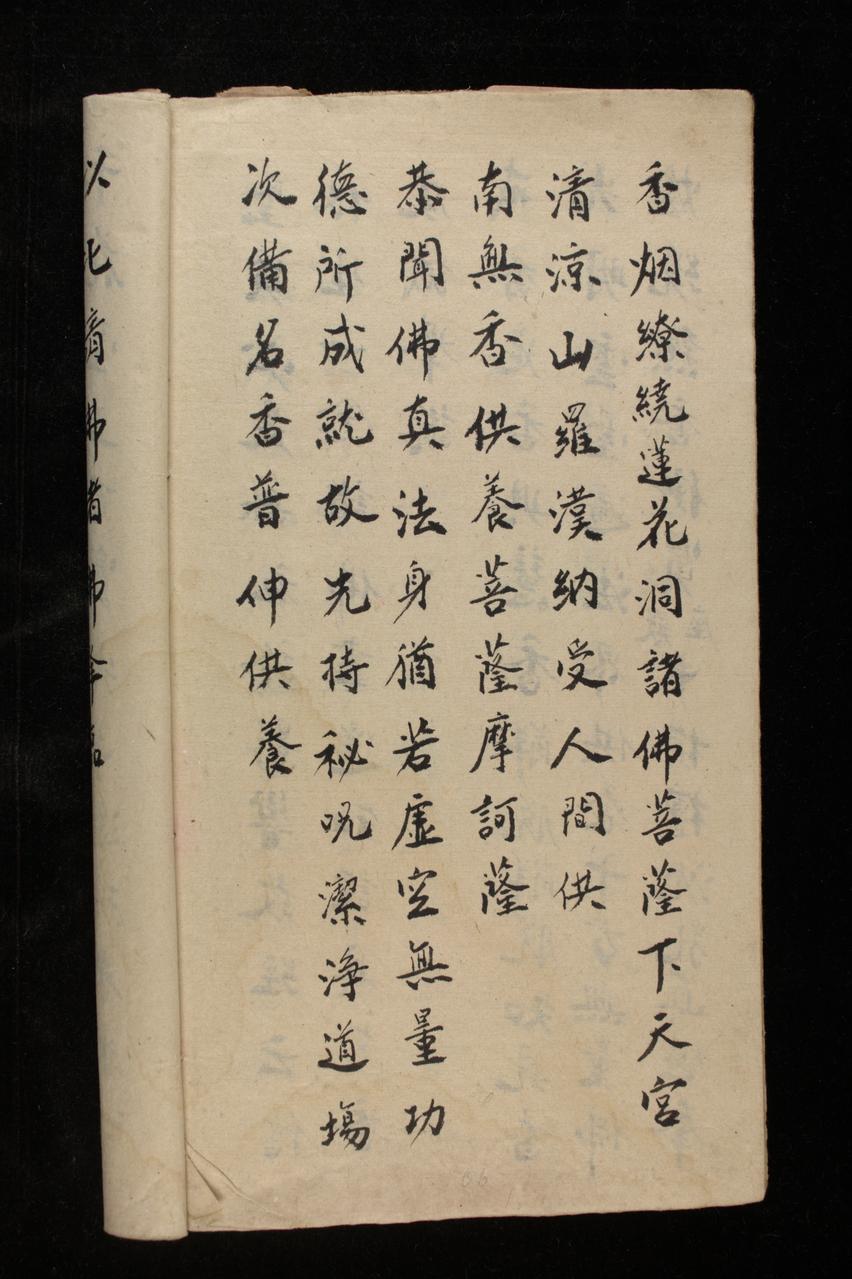 香烟繚繞蓮花洞諸佛菩蕯下天宮
清凉山羅漢納受人間供
南無香供養菩蕯摩訶蕯
恭聞佛真法身猶若虛空無量功
德所成就故先持秘呪潔淨道塲
次備名香普伸供養
以此請佛者佛